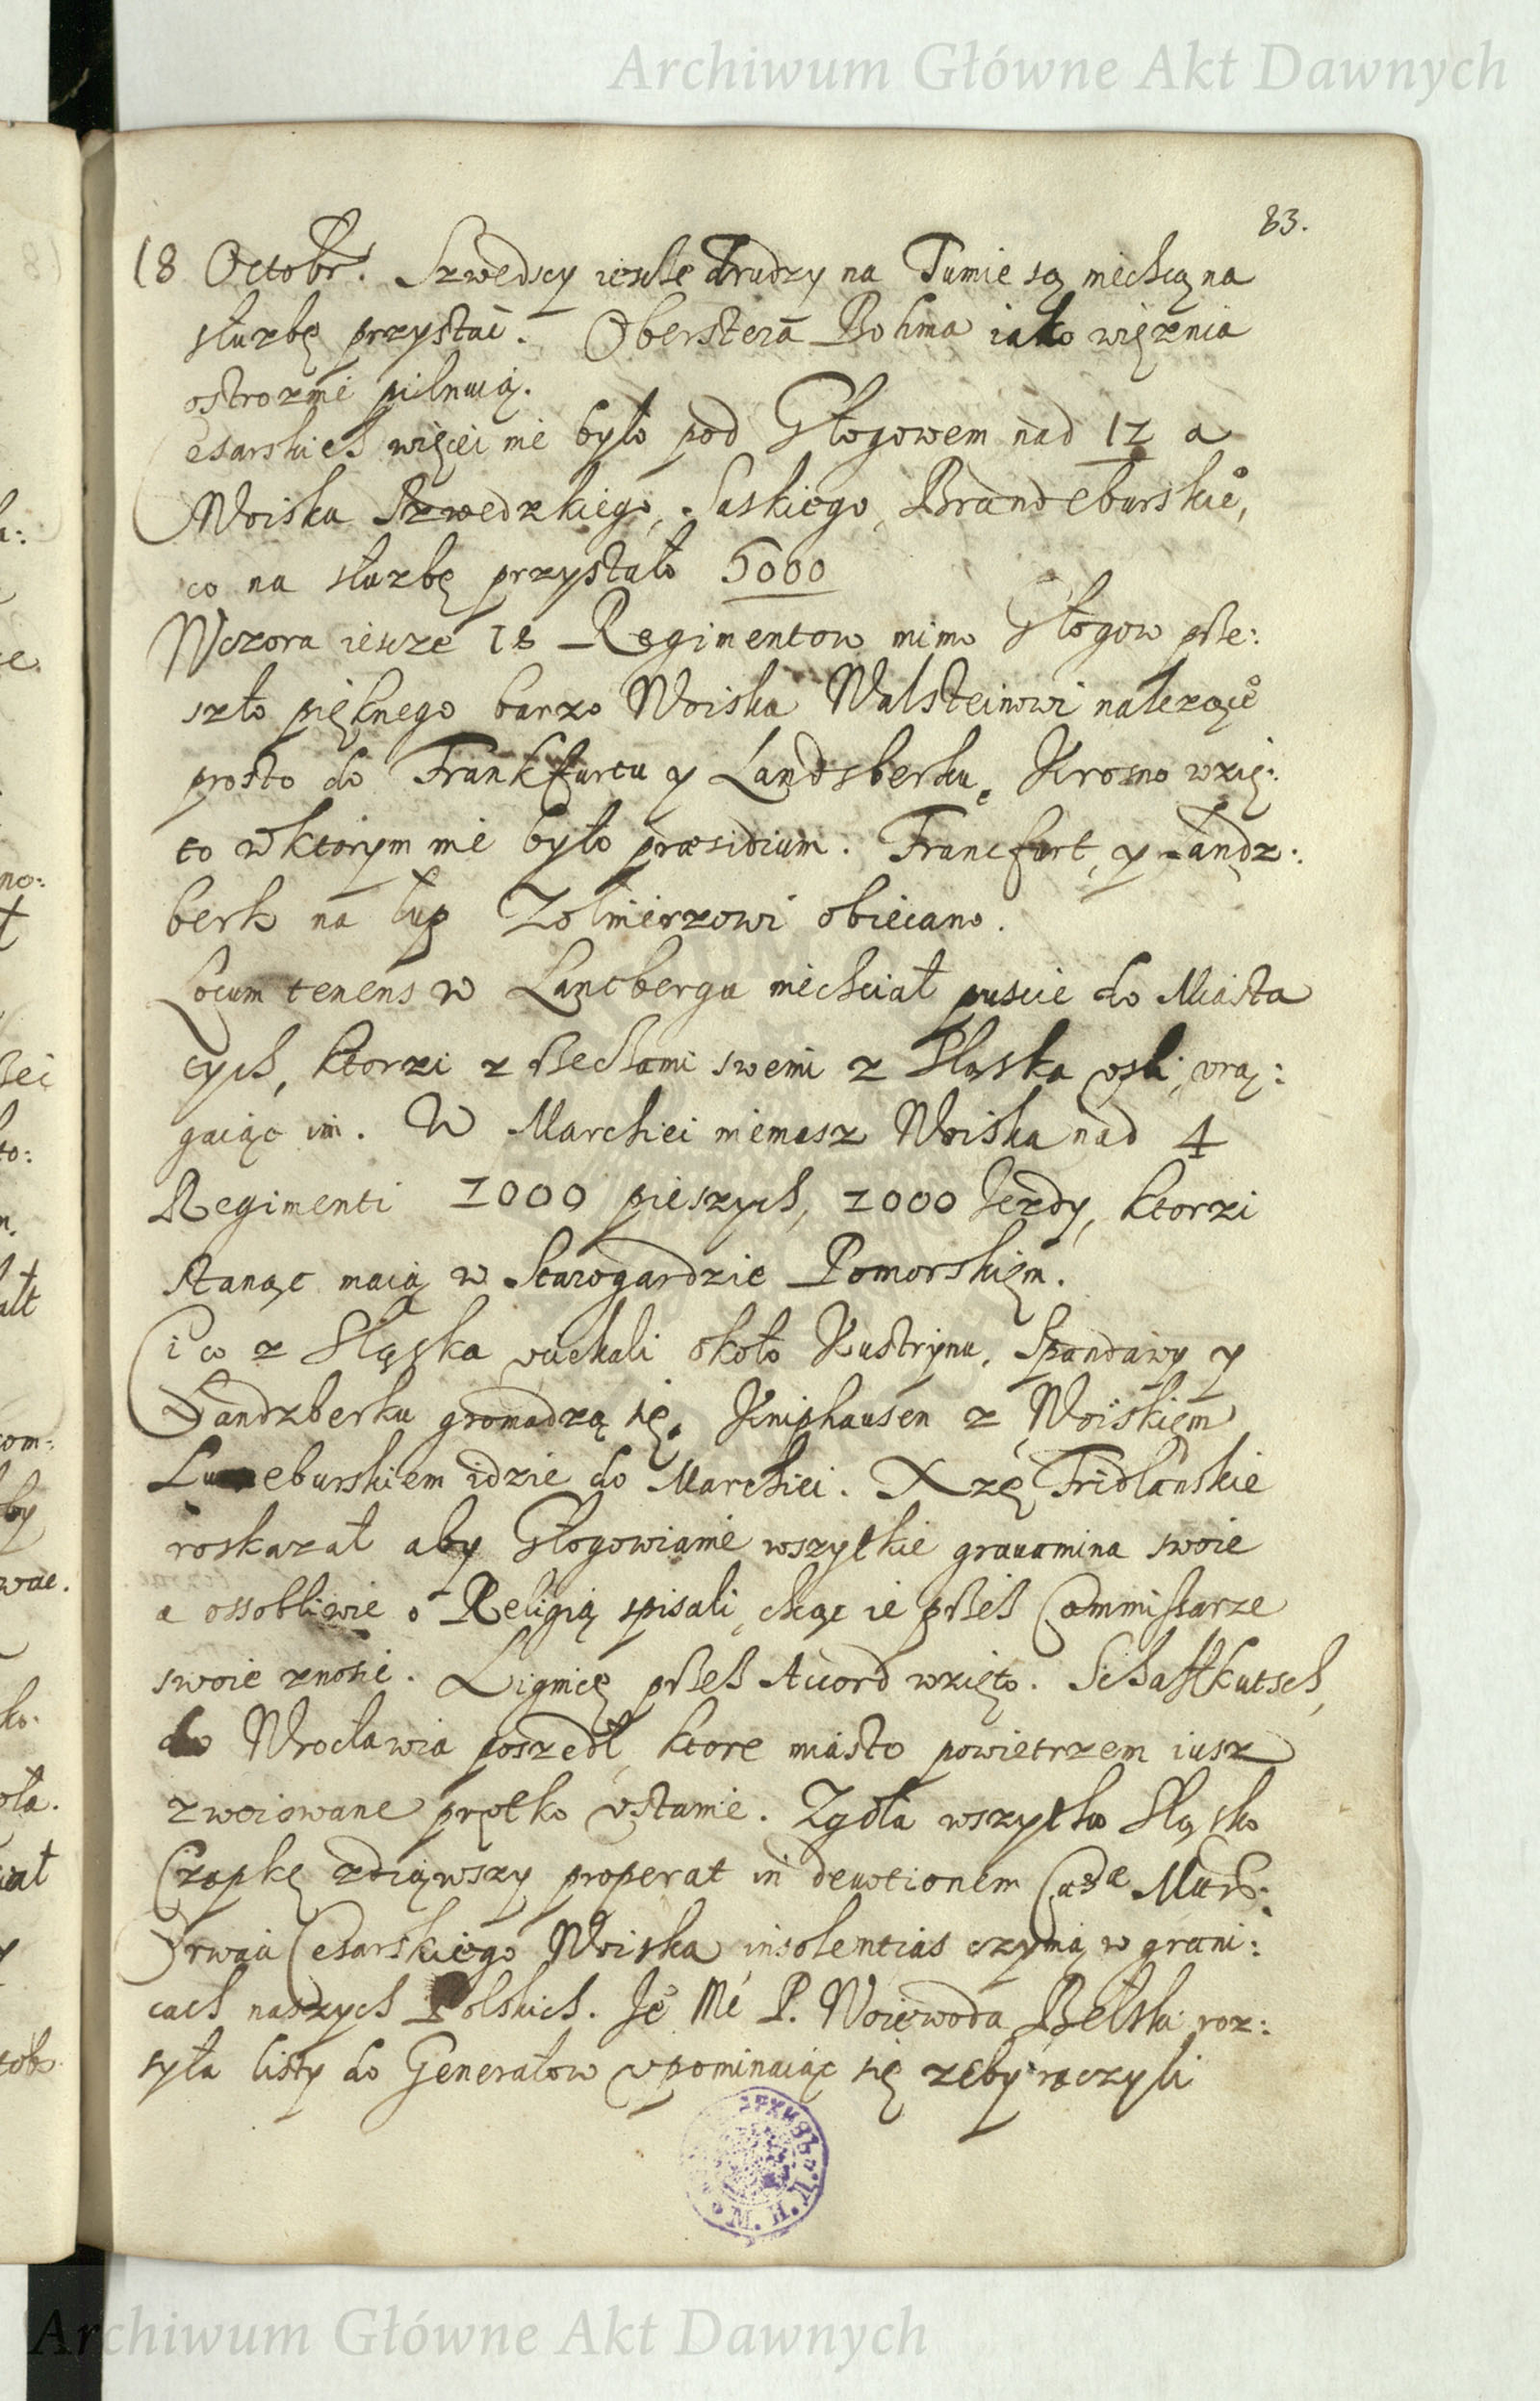 Archiwum Główne Akt Dawnych
83.
18 Octobr. Szwedscy iescze drudzy na Tumie są niechcą na
służbę przystać. Oberszterá Bohma iako więznia
ostroznie pilnuią.
Cesarskich więcei nie było pod Głogowem nad 12 a
Woiska Szwedzkiego, Saskiego, Brandeburskiego,
co na służbę przystało 5000
Wczora iescze 18 Regimentow mimo Głogow prze:
szło pięknego barzo Woiska Walsteinowi należącego
prosto do Frankfurtu y Landsberku. Krosno wzię:
to w ktorym nie było præsidium. Francfort, y Landz:
berk na łup Zołnierzowi obiecano.
Locum tenens w Lantbergu niechciał puscic do Miasta
tych, ktorzi z Rzeczami swemi z Sląska vszli, vrą:
gaiąc im. W Marchiei niemasz Woiska nad 4
Regimenti 1000 pieszych, 1000 Jezdy, ktorzi
stanąc maią w Starogardzie Pomorskiem.
Ci co z Sląska vciekali około Kustrynu, Spandawy y
Landzberku gromadzą się. Kniphausen z Woiskiem
Luneburskiem idzie do Marchiei. Xzę Fridlanskie
roskazał aby Głogowianie wszytkie grauamina swoie
a ossobliwie o Religią spisali, chcąc ie przes Commissarze
swoie znosic. Lignicę przes Accord wzięto. Schaffkutsch
do Wrocławia poszedł, ktore miasto powietrzem iusz
zwoiowane prętko vstanie. Zgoła wszytko Sląsko
Czapkę zdiąwszy properat in deuotionem Cæsæ
Cesarskiego Woiska insolentias czynią w grani:
cach naszych Polskich. Je Mć P. Woiewoda Bełski roz:
syła listy do Generałow vpominaiąc się zeby raczyli
Archiwum Główne Akt Dawnych